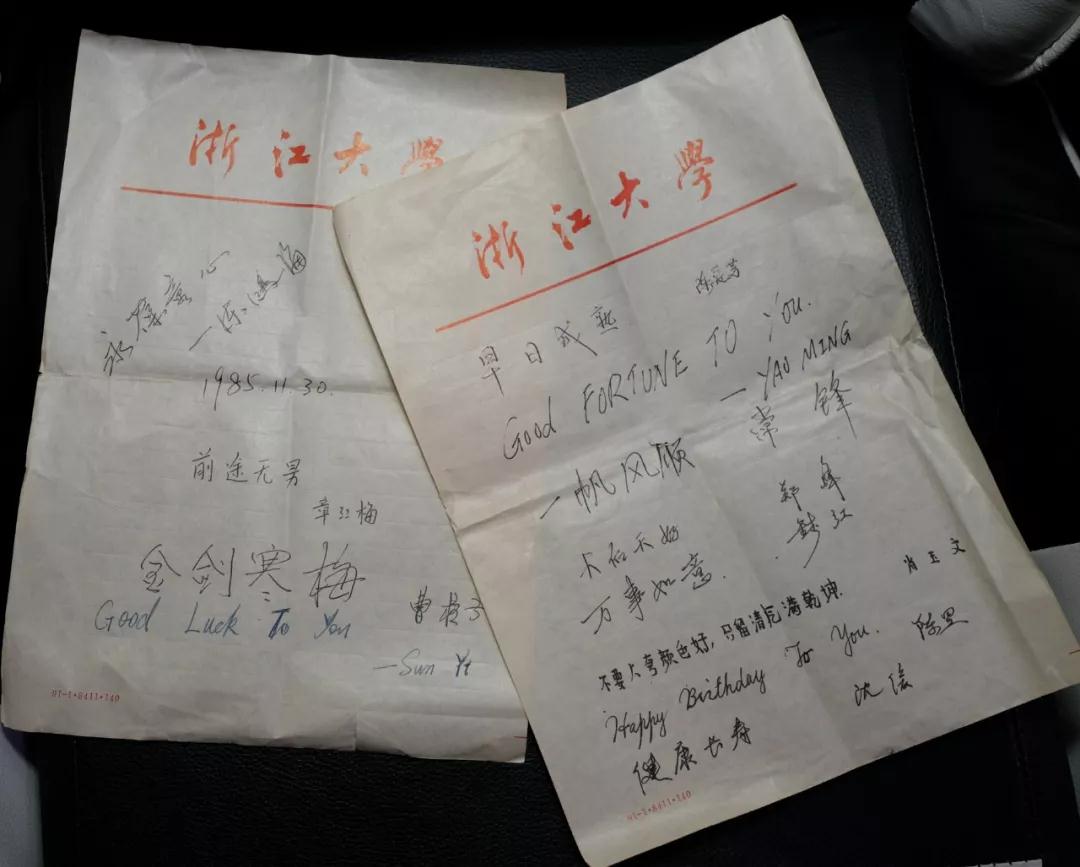 浙江大學
1985.11.30.
前途无男
章红梅
金剑寒梅
Good Luck To You
—Sun Yt
01-1•8411•140
浙江大學
早日成熟
Good FORTUNE TO YOU.
— YAO MING
一帆风顺
常锋
郑峰
万事如意.
肖玉文
不要人夸颜色好，只留清气满乾坤.
Happy Birthday To You.
沈信
健康长寿
01-1•8411•140